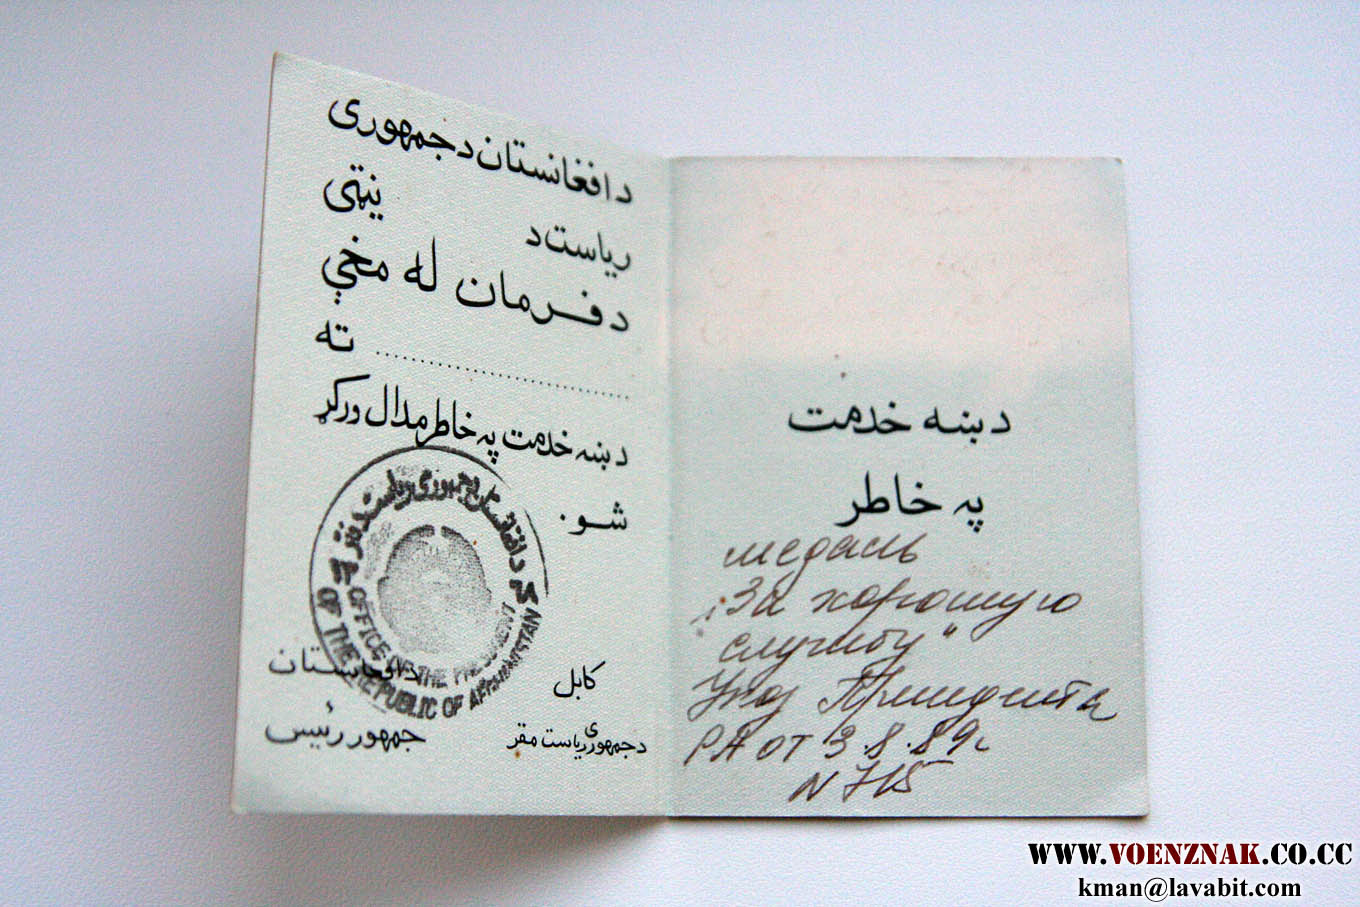 د افغانستان د جمهوری
ریاست د     نیټې
د فرمان له مخې
........................ ته
د ښه خدمت په خاطر مدال ورکړ
شو.
د افغانستان د جمهوری ریاست دفتر
OFFICE OF THE PRESIDENT
OF THE REPUBLIC OF AFGHANISTAN
کابل
د جمهوری ریاست مقر
د افغانستان
جمهور رئیس
د ښه خدمت
په خاطر
медаль
"За хорошую
службу"
Указ Президента
РА от 3.8.89г
N 715
WWW.VOENZNAK.CO.CC
kman@lavabit.com